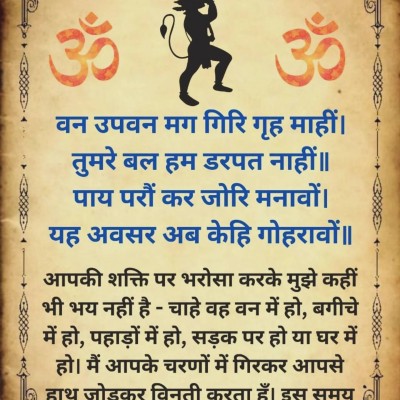 ॐ ॐ
वन उपवन मग गिरि गृह माहीं।
तुमरे बल हम डरपत नाहीं॥
पाय परौं कर जोरि मनावों।
यह अवसर अब केहि गोहरावों॥
आपकी शक्ति पर भरोसा करके मुझे कहीं
भी भय नहीं है - चाहे वह वन में हो, बगीचे
में हो, पहाड़ों में हो, सड़क पर हो या घर में
हो। मैं आपके चरणों में गिरकर आपसे
हाथ जोड़कर विनती करता हूँ। इस समय